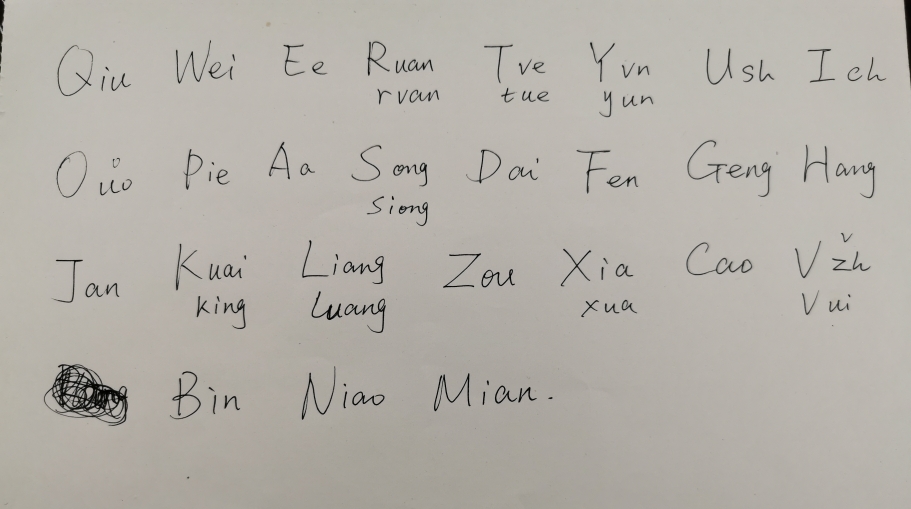 Qiu Wei Ee Ruan Tve Yvn Ush Ich
rvan tue yun
Oůo Pie Aa Song Dai Fen Geng Hang
Siong
Jan Kuai Liang Zou Xia Cao Vžh
king Luang xua Vui
Bin Niao Mian.